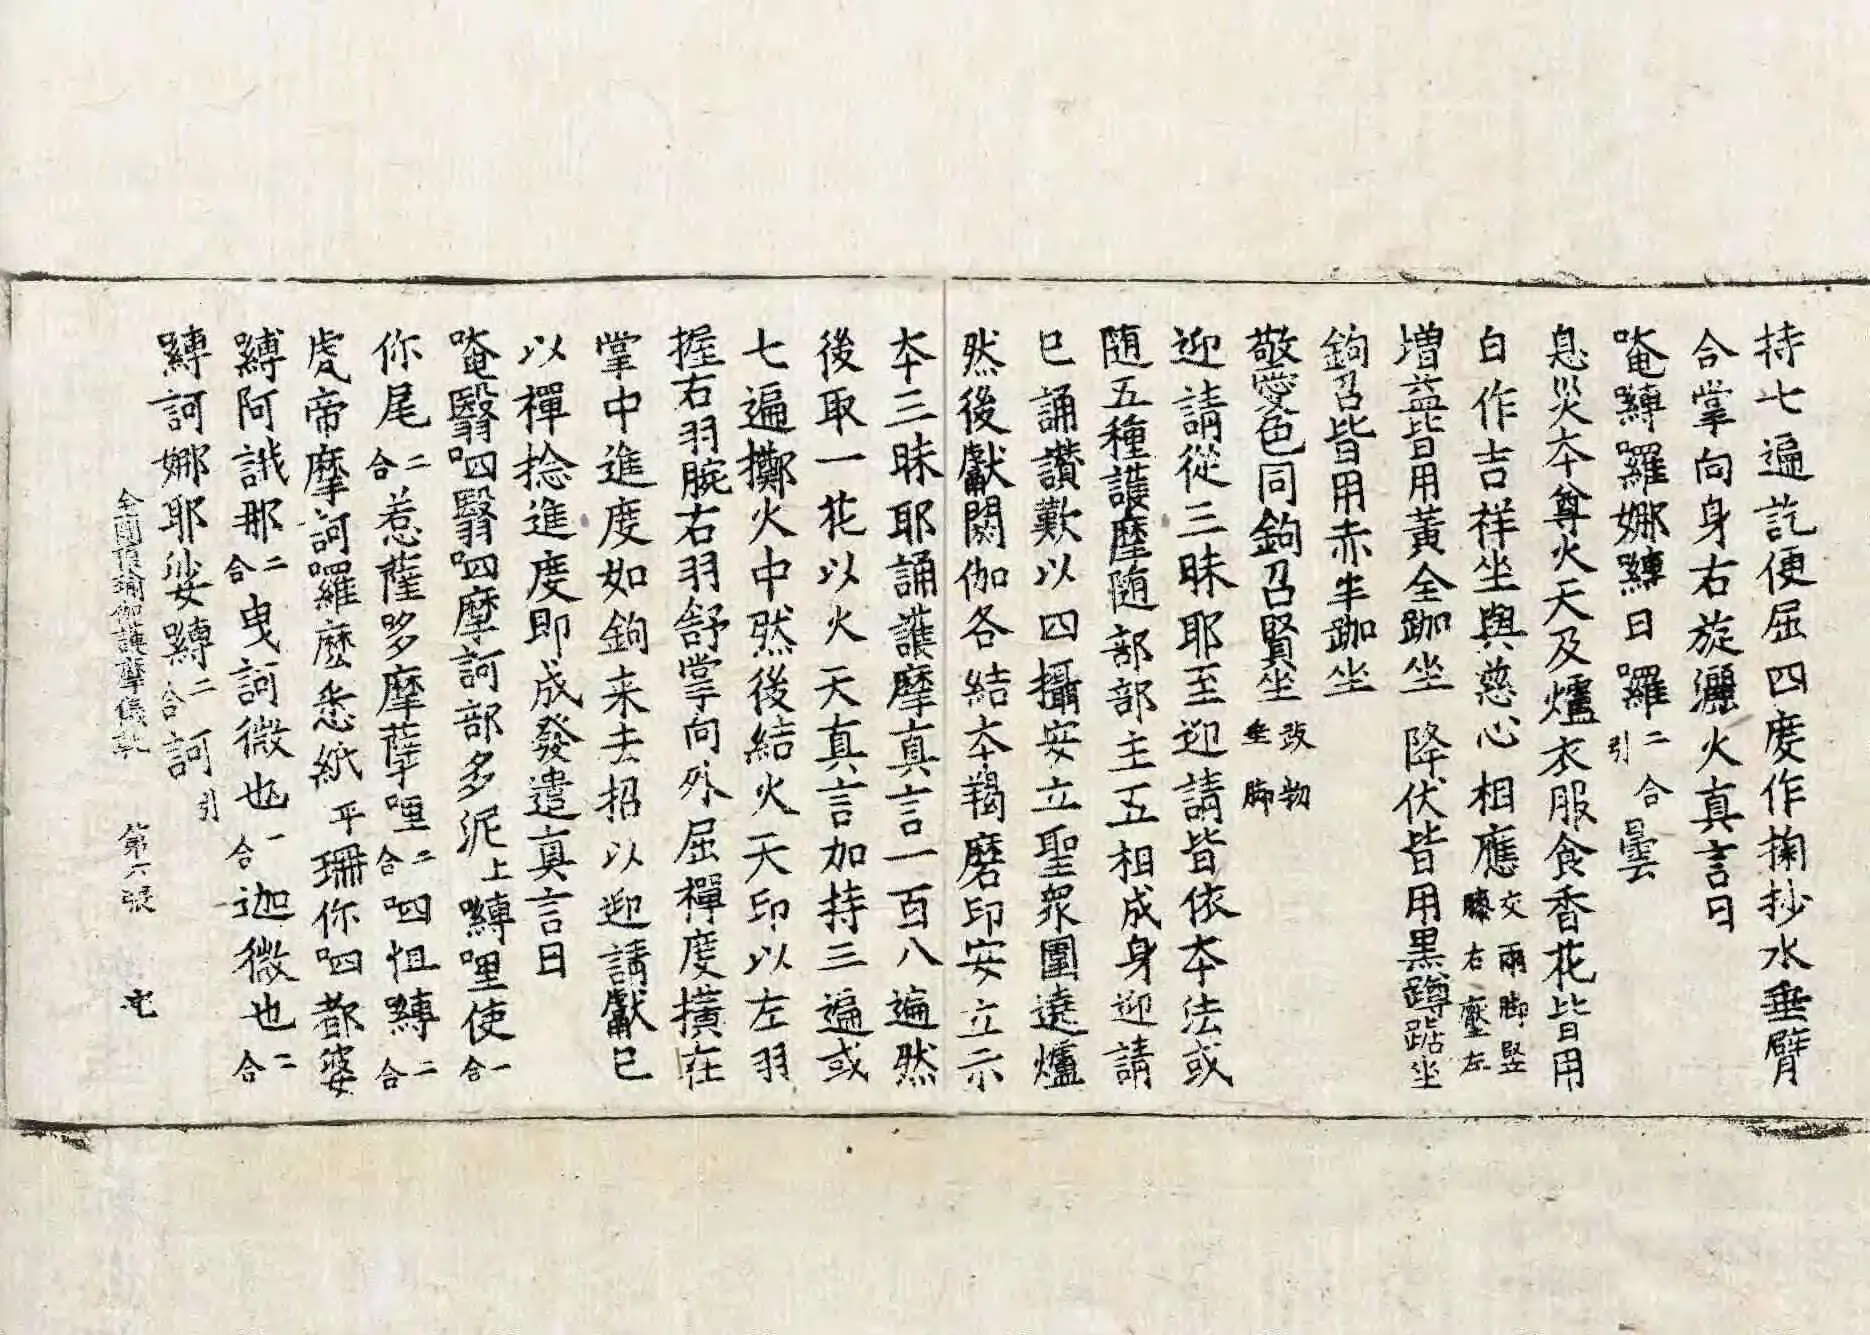 持七遍訖便屈四度作掬抄水垂臂
合掌向身右旋灑火真言曰
唵嚩囉娜嚩日囉二合引曇
息災本尊火天及爐衣服食香花皆用
白作吉祥坐與慈心相應交兩脚竪膝右壓左
増益皆用黃全跏坐 降伏皆用黒蹲踞坐
鉤召皆用赤半跏坐
敬愛色同鉤召賢坐垂脚
迎請從三昧耶至迎請皆依本法或
随五種護摩随部部主五相成身迎請
已誦讃歎以四攝安立聖衆圍遶爐
然後獻閼伽各結本羯磨印安立示
本三昧耶誦護摩真言一百八遍然
後取一花以火天真言加持三遍或
七遍擲火中然後結火天印以左羽
握右羽腕右羽舒掌向外屈禪度横在
掌中進度如鉤来去招以迎請獻已
以禪捻進度即成發遣真言曰
唵翳呬翳呬摩訶部多泥上嚩哩使二合
你尾二合惹薩哆摩孽哩二合呬怛嚩二合
虎帝摩訶囉麼悉紙平珊你呬都婆
嚩阿誐那二合曳訶微也二合迦微也二合
嚩訶娜耶娑嚩二合訶引
金剛頂瑜伽護摩儀軌 第六張